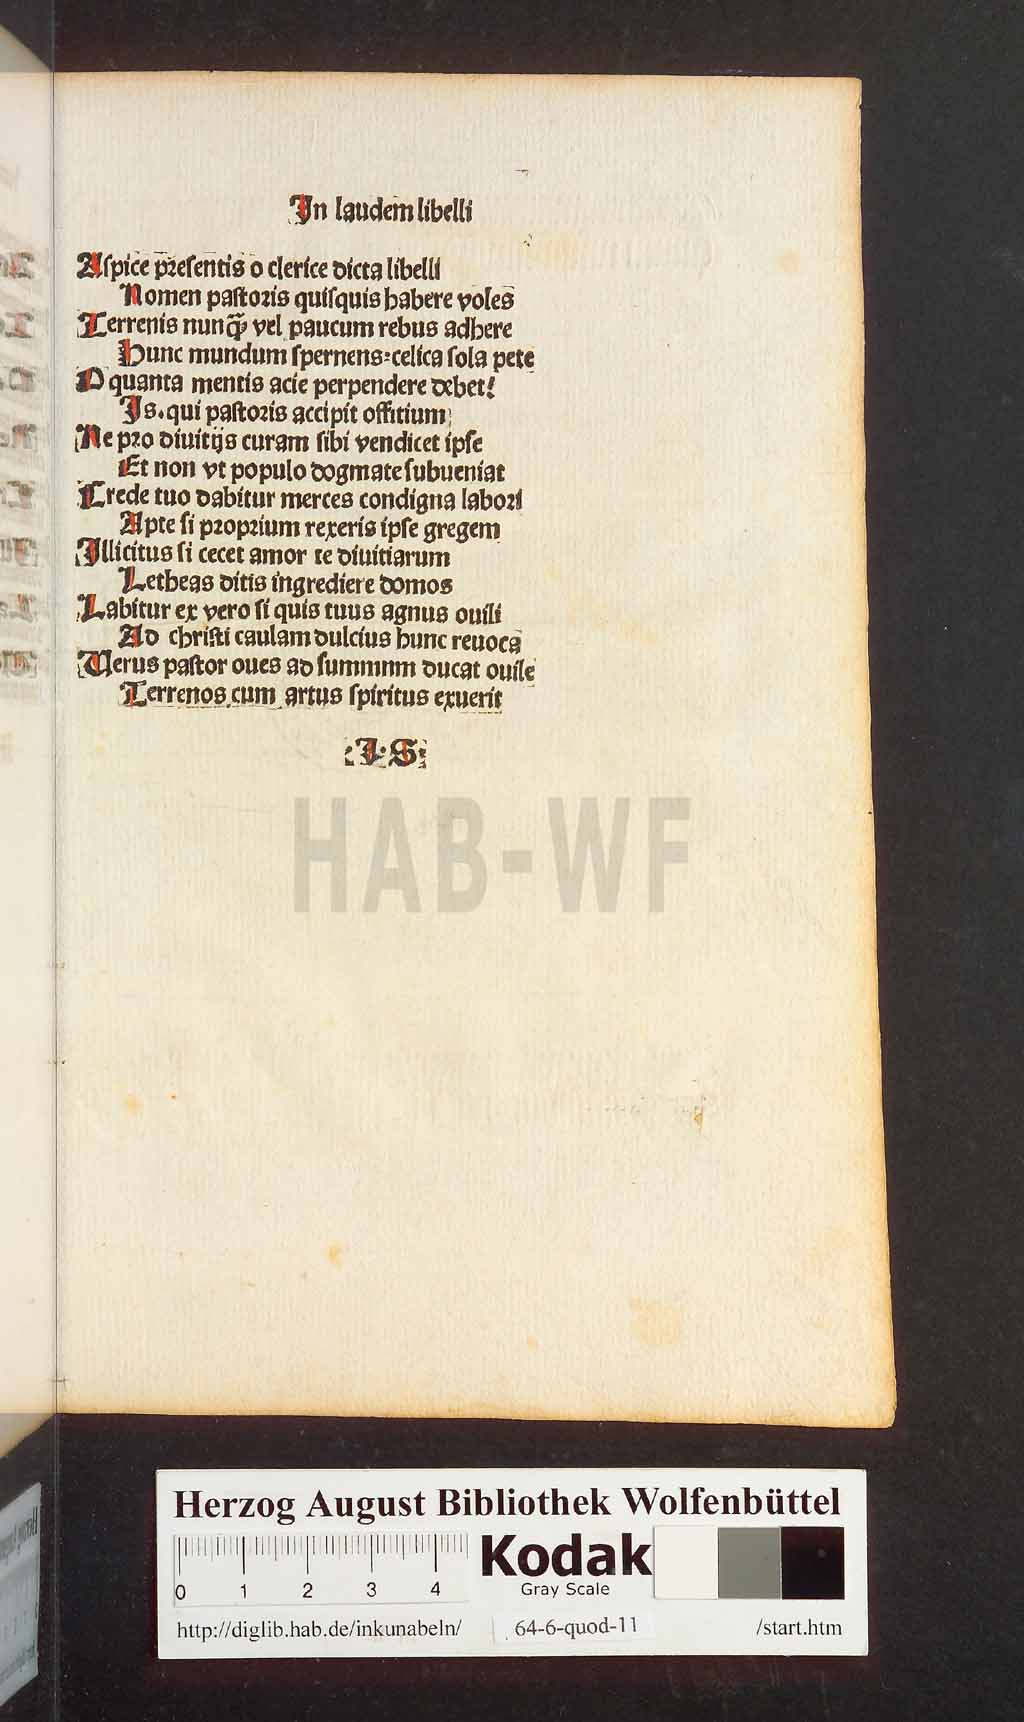 In laudem libelli
Aſpice preſentis o clerice dicta libelli
Nomen paſtoris quiſquis habere voles
Terrenis nunqͣꝫ vel paucum rebus adhere
Hunc mundum ſpernens:celica ſola pete
O quanta mentis acie perpendere debet!
Is.qui paſtoris accipit offitium
Ne pro diuitijs curam ſibi vendicet ipſe
Et non vt populo dogmate ſubueniat
Crede tuo dabitur merces condigna labori
Apte ſi proprium rexeris ipſe gregem
Illicitus ſi cecet amor te diuitiarum
Letheas ditis ingrediere domos
Labitur ex vero ſi quis tuus agnus ouili
Ad chriſti caulam dulcius hunc reuoca
Uerus paſtor oues ad ſummnm ducat ouile
Terrenos cum artus ſpiritus exuerit
:I:S:
HAB-WF
Herzog August Bibliothek Wolfenbüttel
0 1 2 3 4
Kodak
Gray Scale
http://diglib.hab.de/inkunabeln/ 64-6-quod-11 /start.htm